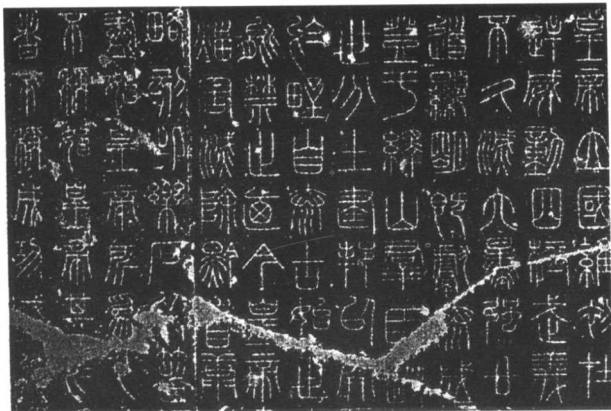 皇帝立國維初在
逆威動四極武義
不久滅六暴強廿
道顯明既獻泰成
登于繹山群臣從
世分土建邦以開
於野自泰古始世
能禁止乃今皇帝
災害滅除黔首康
略刻此樂石以著
盡始皇帝所為也
不稱始皇帝其於
者不稱成功盛德